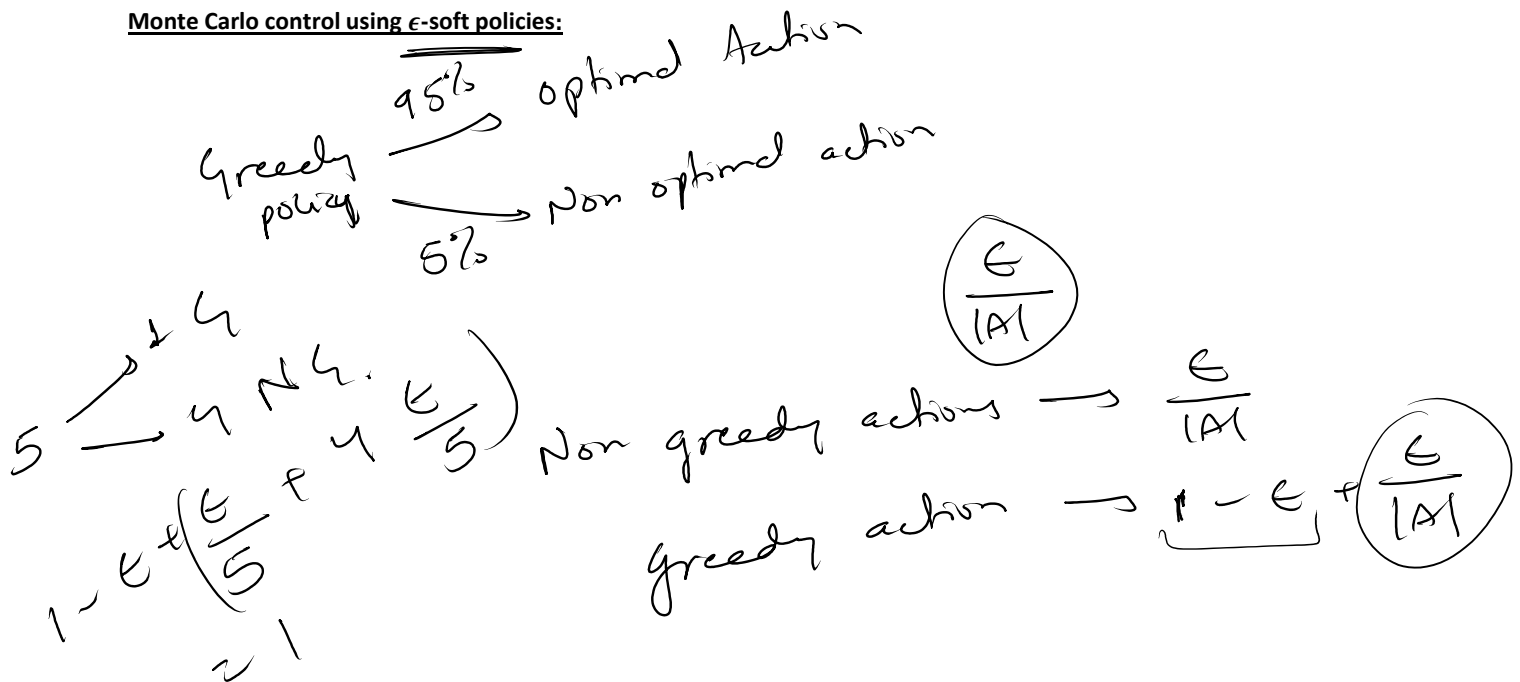 Monte Carlo control using ϵ-soft policies:
95% optimal Action
Greedy policy
5% Non optimal action
ϵ/|A|
5 → 1 G
→ 4 NG.
1 - ϵ + (ϵ/5 + 4 ϵ/5)
= 1
Non greedy actions → ϵ/|A|
greedy action → 1 - ϵ + ϵ/|A|